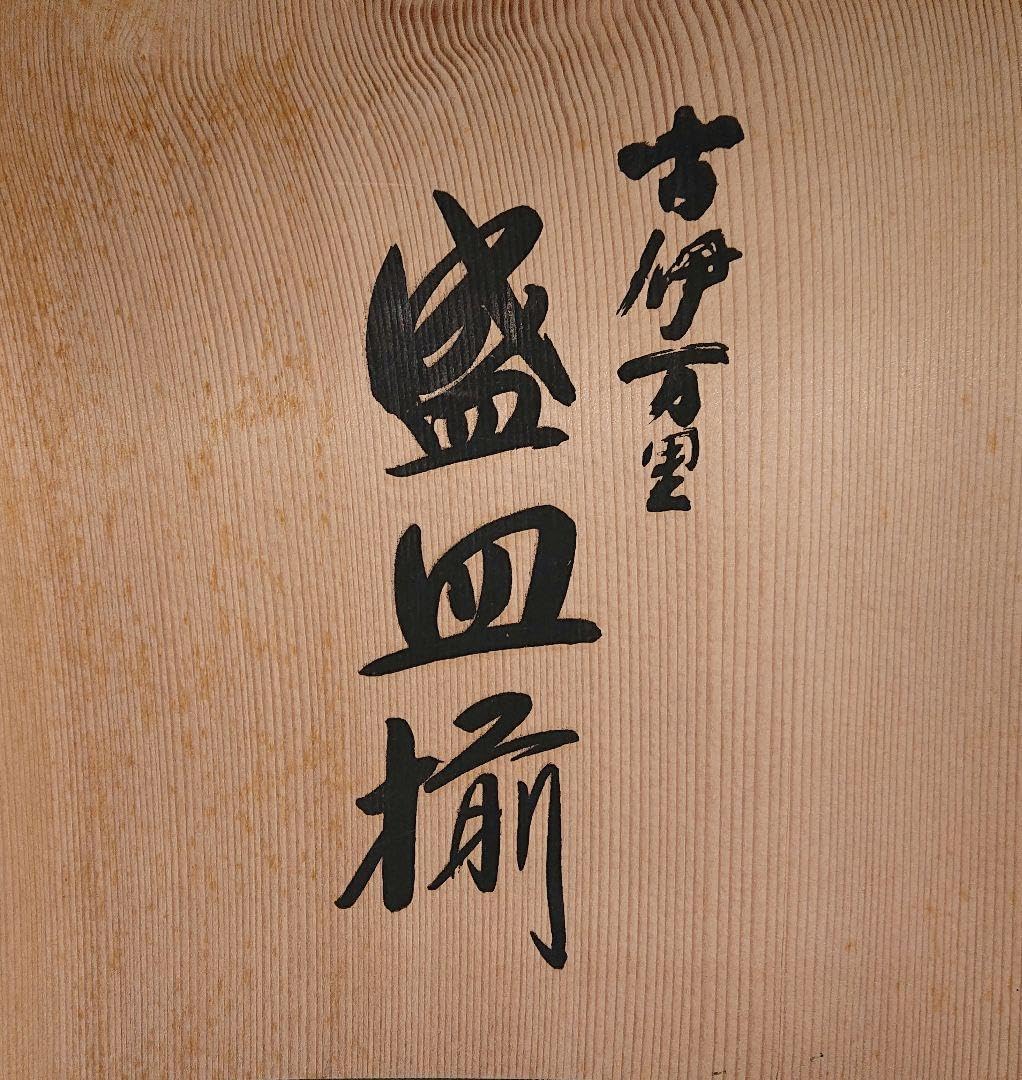 古伊万里
盛皿揃